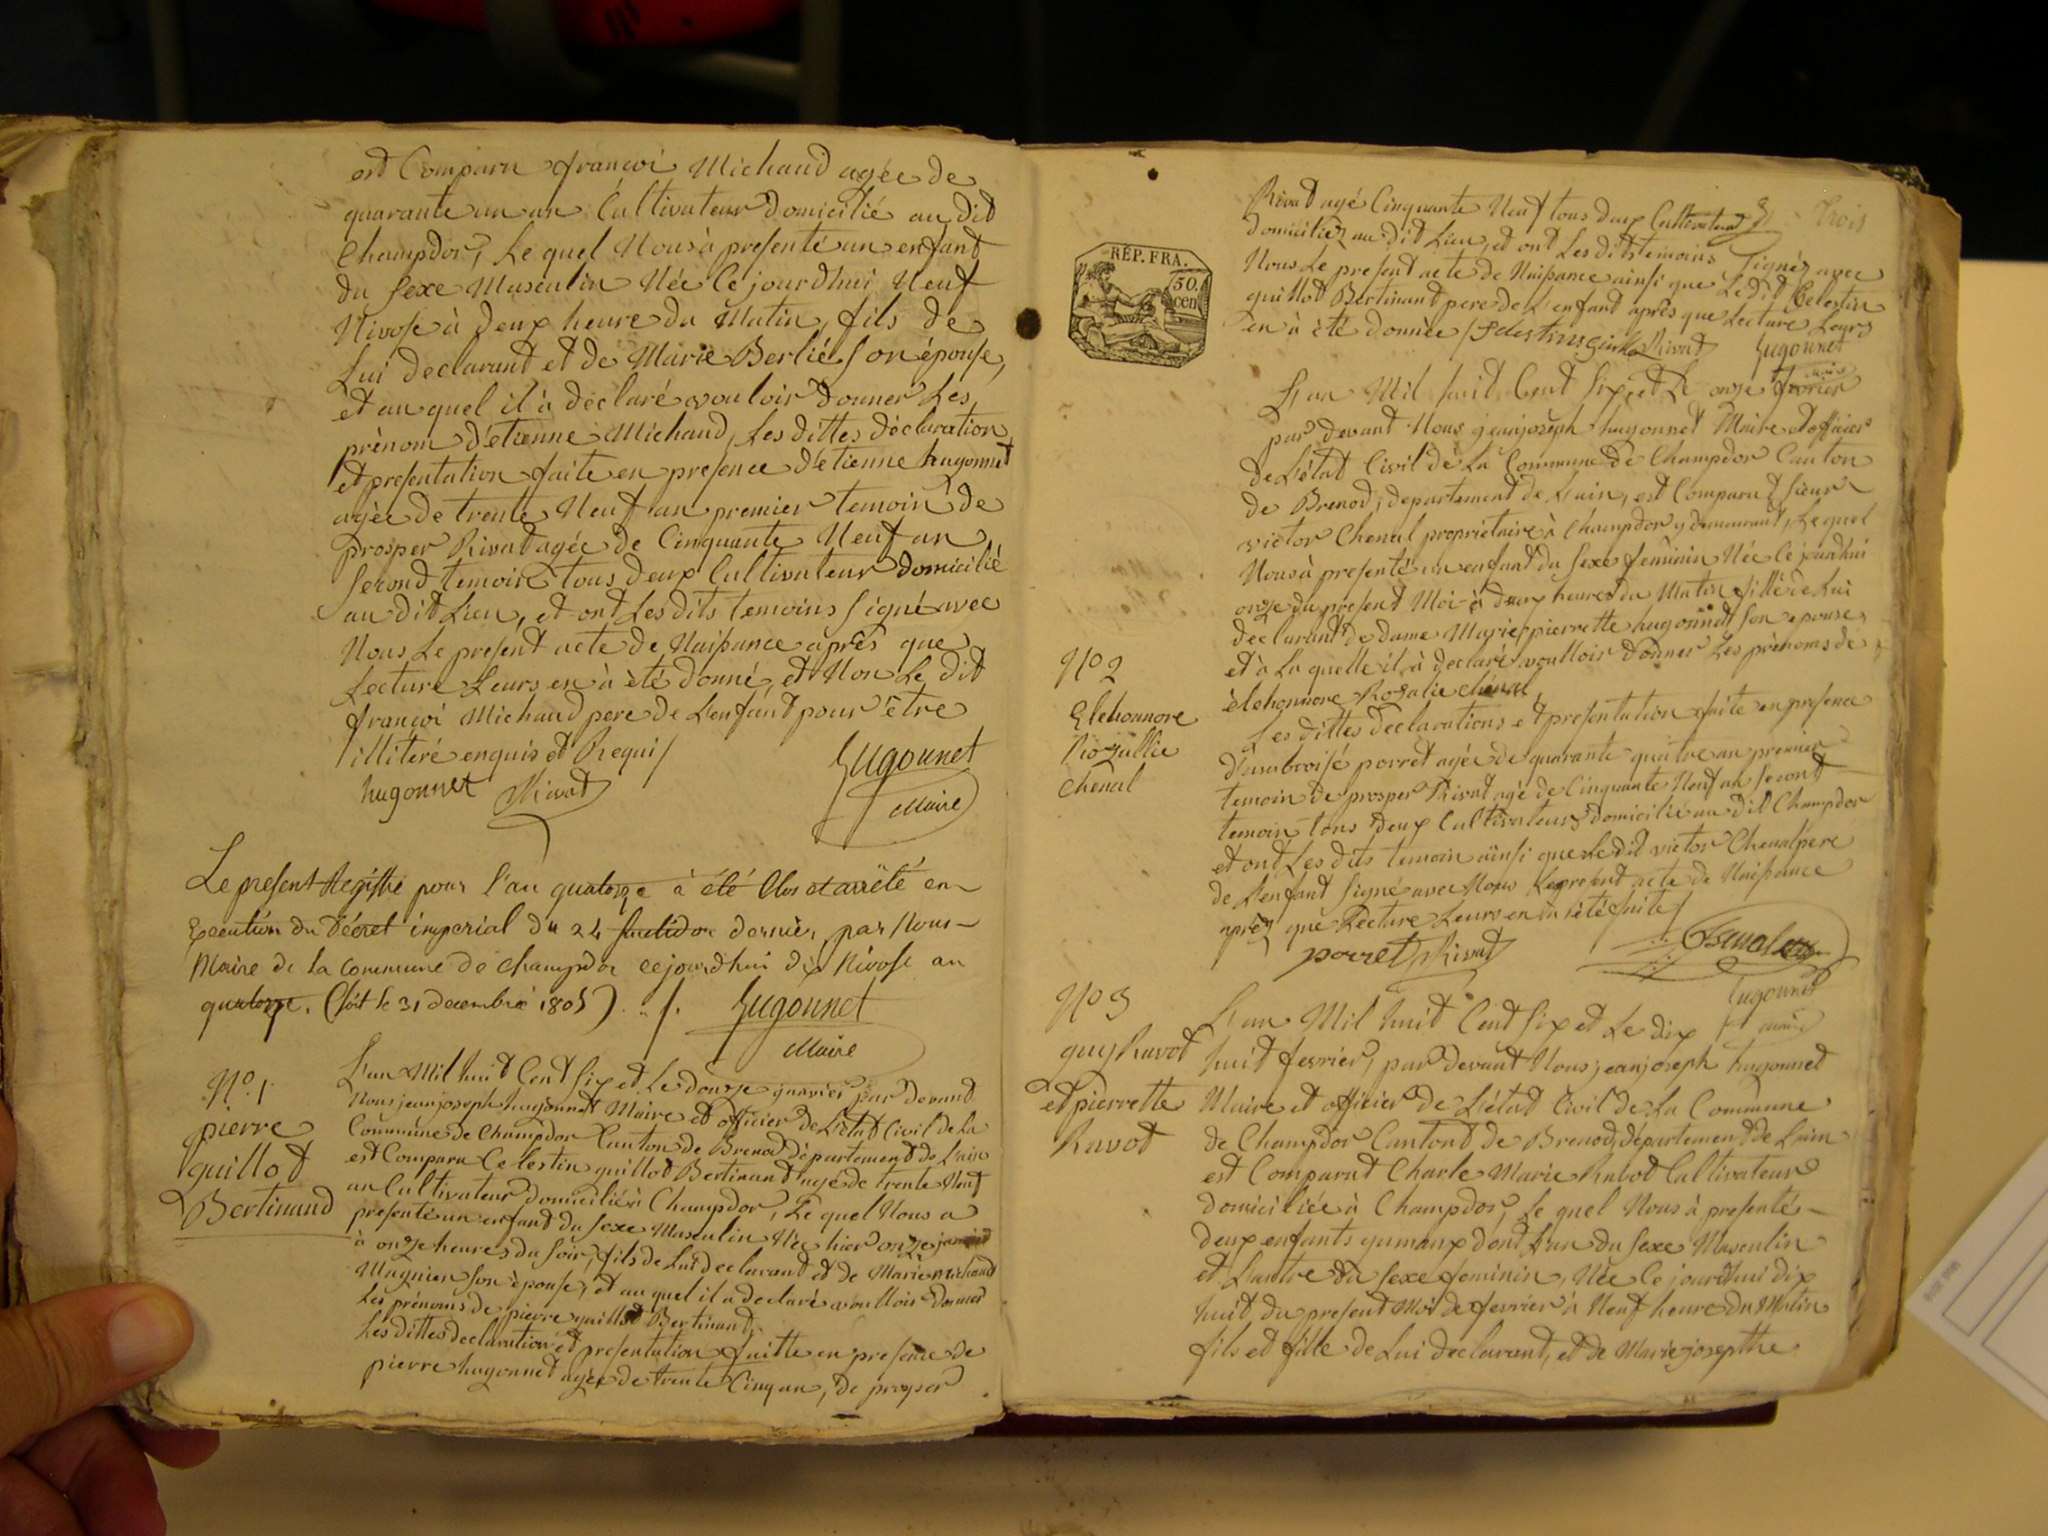 est Comparu françoi Michaud agée de
quarante un an Cultivateur domicilié au dit
Champdor, Le quel Nous à presenté un enfant
du sexe Masculin Née Ce jourdhui Neuf
Nivose à deux heure du Matin, fils de
Lui declarant et de Marie Berlié son épouse,
et au quel il à déclaré vouloir donner Les
prénom d'etienne Michaud, Les dittes déclaration
et presentation faite en presence d'etienne hugonnet
agée de trente Neuf an premier temoin de
prosper Rivat agée de Cinquante Neuf an
second temoin tous deux Cultivateur domicilié
au dit Lieu, et ont Les dits temoins signé avec
Nous Le present acte de Naissance après que
Lecture Leurs en à été donné, et Non Le dit
françoi Michaud pere de L'enfant pour être
illiteré enquis et Requis/
hugonnet Rivat Hugonnet
Maire
Le present Registre pour l'an quatorze à été Clos et arrêté en
Execution du Décret imperial du 24 fructidor dernier, par Nous
Maire de la Commune de champdor cejourdhui dix Nivose an
quatorze. (soit le 31 decembre 1805) ./. Hugonnet
Maire
N° 1
pierre
guillot
Bertinand
L'an Mil huit Cent six et Le douze janvier par devant
Nous jeanjoseph hugonnet Maire et officier de L'état Civil de la
Commune de Champdor Canton de Brenod département de L'ain
est Comparu Celestin guillot Bertinand agé de trente Neuf
an Cultivateur domicilié à Champdor, Le quel Nous a
presenté un enfant du sexe Masculin Née hier onze janvier
à onze heures du soir, fils de Lui declarant et de Marie Michaud
Magnien son épouse, et au quel il a declaré voulloir donner
Les prénoms de pierre guillot Bertinand,
Les dittes declaration et presentation faitte en presence de
pierre hugonnet agée de trente Cinq an, de prosper
RÉP. FRA.
50.
cen
Rivat agé Cinquante Neuf tous deux Cultivateur 3 Trois
domiciliez au dit Lieu, et ont Les dits temoins signéz avec
Nous Le present acte de Naissance ainsi que Le dit Celestin
guillot Bertinand pere de L'enfant après que Lecture Leurs
en à été donnée / Rivat Hugonnet
maire
L'an Mil huit Cent six et Le onze fevrier
par devant Nous jeanjoseph hugonnet Maire et officier
de L'état Civil de La Commune de Champdor Canton
de Brenod, departement de L'ain, est Comparut sieur
victor Chenal proprietaire à Champdor y demeurant, Le quel
Nous à presenté un enfant du sexe feminin Née Ce jourdhui
onze du present Moi à deux heures du Matin fille de Lui
declarant de dame Marie pierrette hugonnet son épouse,
et à La quelle il à declaré voulloir donner Les prénoms de
élehonnore Rosalie chenal,
N° 2
Elehonnore
Rozallie
chenal
Les dittes declarations et presentation faite en presence
d'ambroisé porret agée de quarante quatre an premier
temoin de prosper Rivat agé de Cinquante Neuf an second
temoin tous deux Cultivateurs domicilié au dit Champdor
et ont Les dits temoin ainsi que Le dit victor Chenal pere
de L'enfant signé avec Nous Le present acte de Naissance
après que Lecture Leurs en à été faite/
porret Rivat
Hugonnet
maire
N° 3
guy Ravot
et pierrette
Ravot
L'an Mil huit Cent six et Le dix
huit fevrier, par devant Nous jeanjoseph hugonnet
Maire et officier de L'état Civil de La Commune
de Champdor Cantont de Brenod, département de L'ain
est Comparut Charle Marie Rabot Cultivateur
domiciliée à Champdor, Le quel Nous à presenté
deux enfants gumaux dont L'un du sexe Masculin
et L'autre du sexe feminin, Née Ce jourdhui dix
huit du present Moi de fevrier à Neuf heure du Matin
fils et fille de Lui declarant, et de Marie josepthe